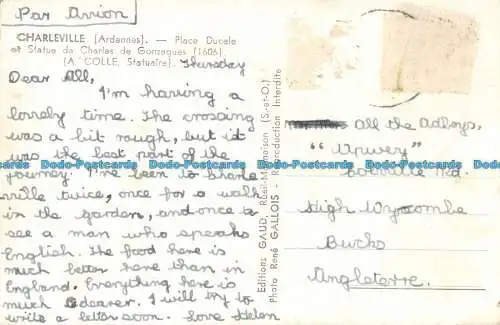 Par Avion
CHARLEVILLE (Ardennes). — Place Ducale
et Statue de Charles de Gonzagues (1606)
(A. COLLE, Statuaire).
Thursday
Dear All,
I'm having a
lovely time. The crossing
was a bit rough, but it
was the best part of the
journey. I've been to Charle
ville twice, once for a walk
in the garden, and once to
see a man who speaks
English. The food here is
much better here than in
England. Everything here is
much dearer. I will try to
write a letter soon. Love Helen
Editions GAUD, Rueil-Malmaison (S.-et-O.)
Photo René GALLOIS - Reproduction Interdite
All the
"Upwey"
Rd.
High Wycombe
Bucks
Angleterre.
Dodo-Postcards Dodo-Postcards Dodo-Postcards Dodo-Postcards Dodo-Postcards